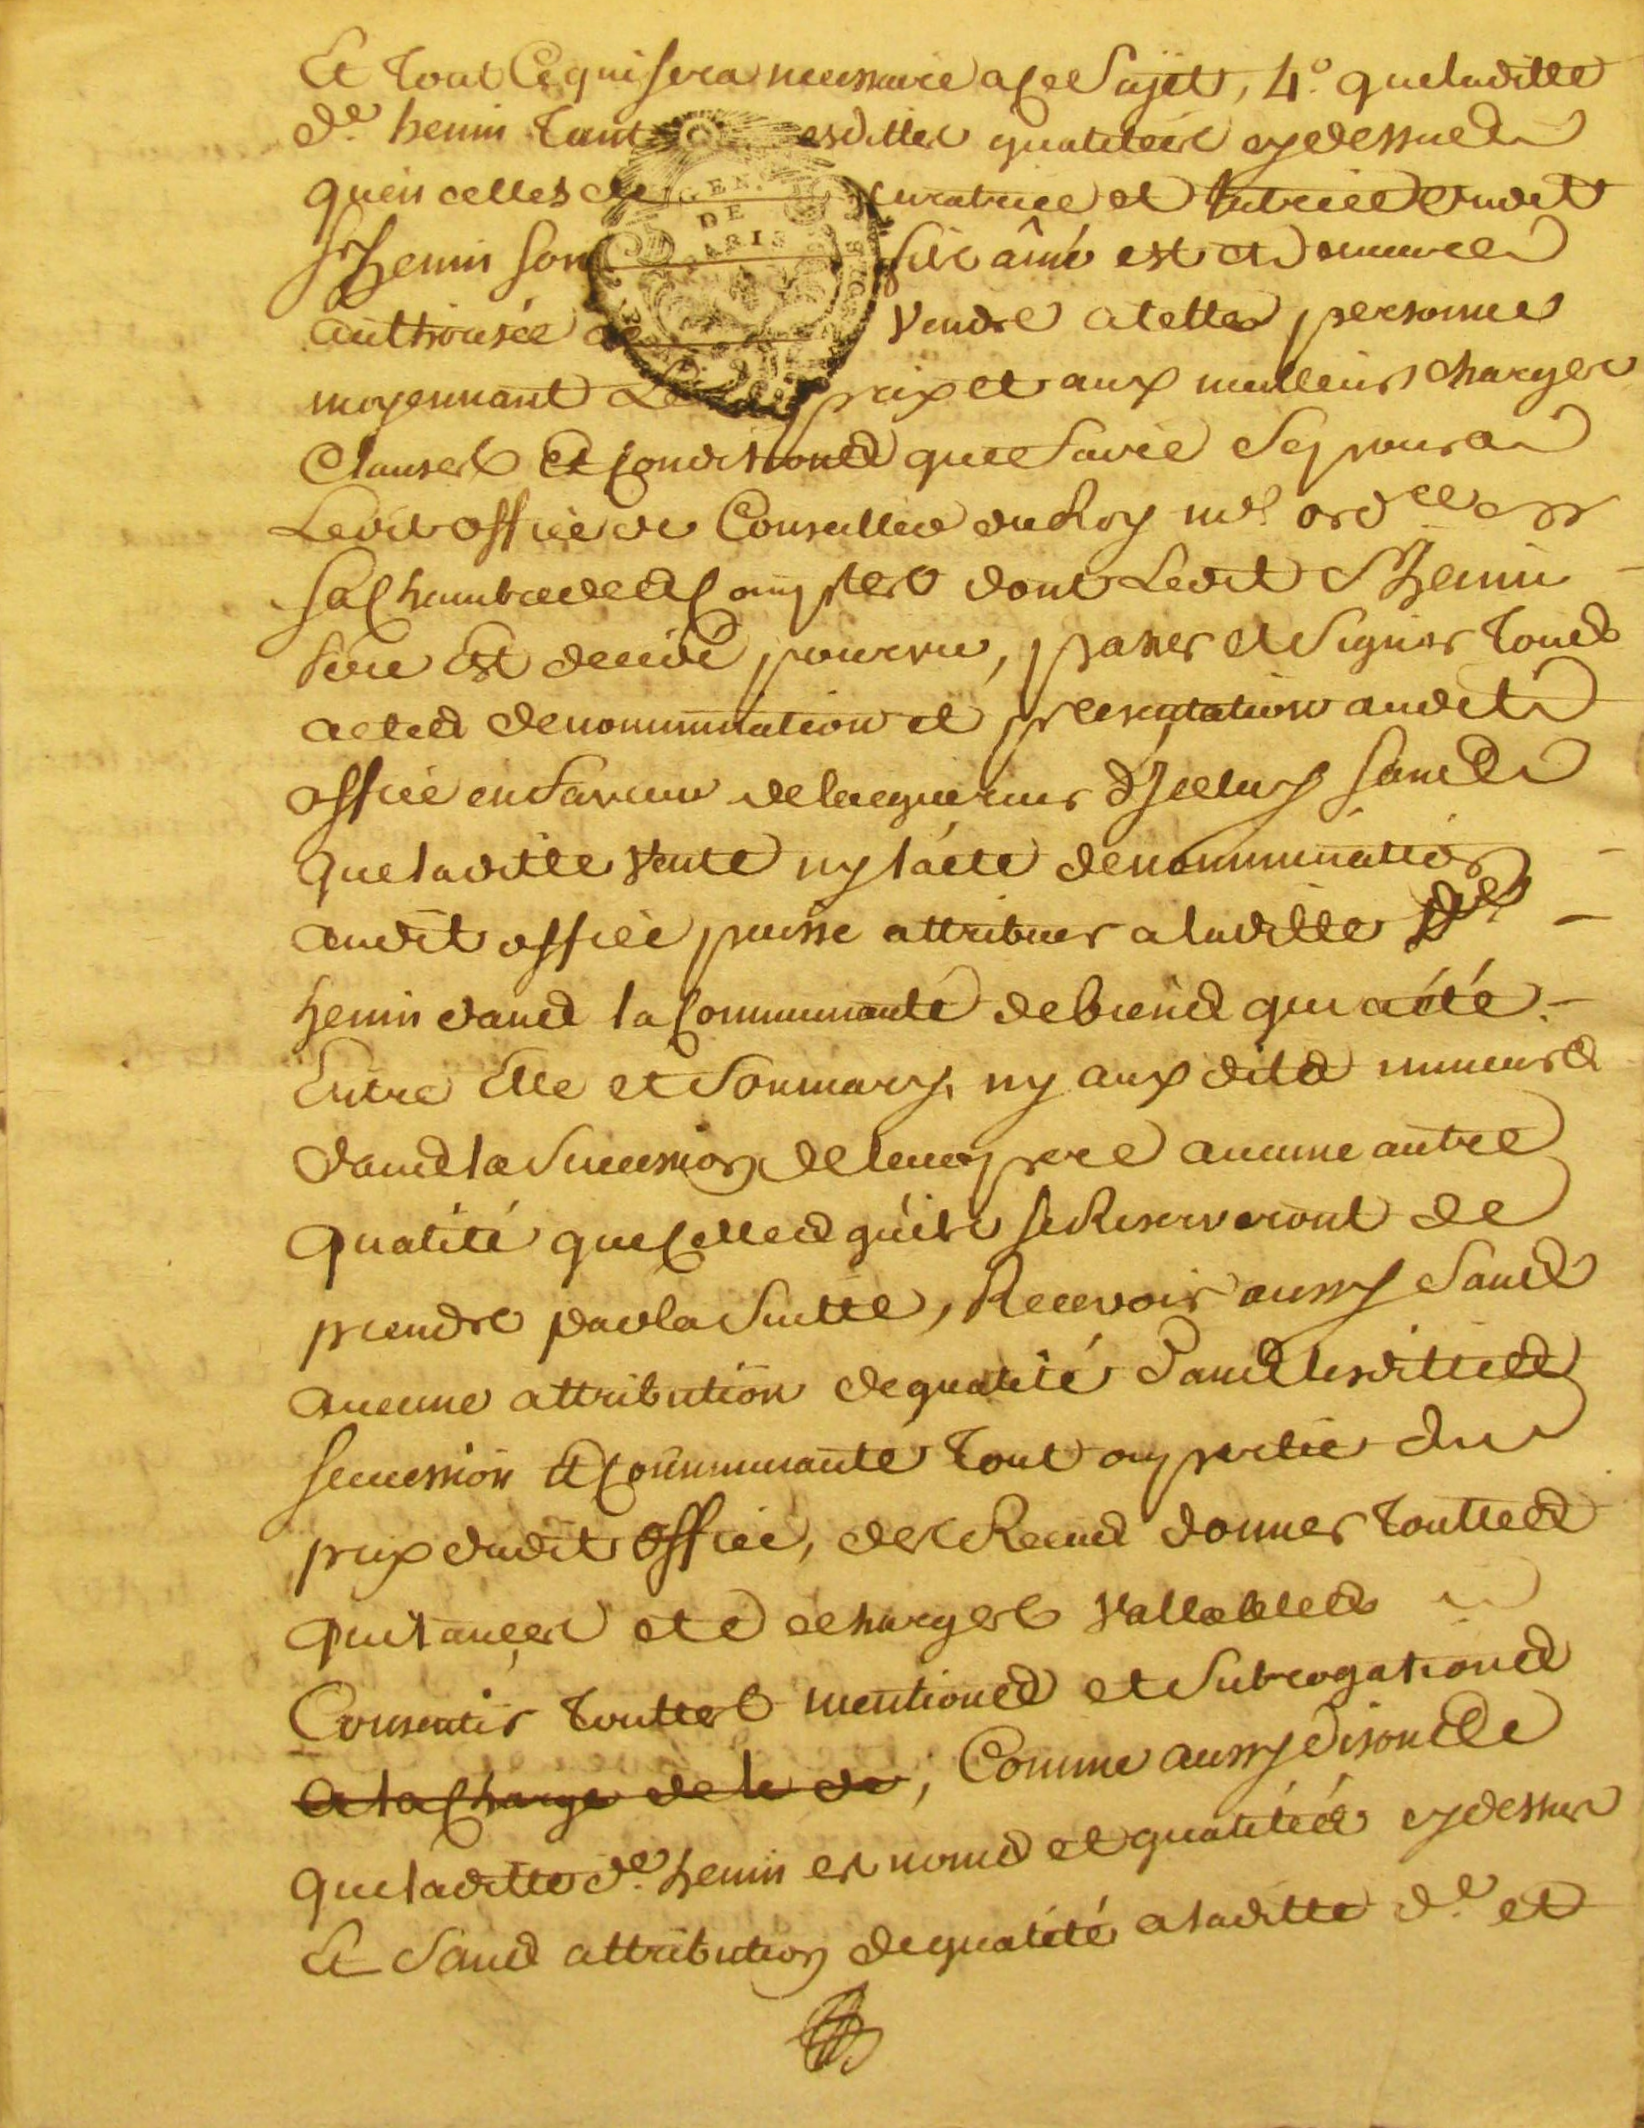 Et tout Ce qui sera necessaire a Ce Sujet, 4.° que laditte
d.e henin tant esdittes qualitées cydessus
quen celles de curatrice et tutrice dudit
Sr henin son fils âiné est et demeure
authorisée de vendre a telles personnes
moyennant Le prix et aux meilleurs charges
Clauses Et Conditions que faire Se poura
Ledit office de Conseiller du Roy ord.re en
Sa Chambre des Comptes dont Ledit S henin
pere Est decedé pourvu, passer et Signer tous
actes de nomination et presentation audit
office en faveur de lacquereur d'Jceluy sans
que laditte vente ny l'acte de nomination
audit office puisse attribuer a laditte De.
henin dans la Communauté de biens qui a été
Entre Elle et Son mary, ny aux dits mineurs
dans la Succession de leur pere aucune autre
qualité que Celles qu'ils se Reserveront de
prendre par la Suitte, Recevoir aussy Sans
aucune attribution de qualité Dans lesdittes
succession et Communauté tout ou partie du
prix dudit office, des Recus donner touttes
quitances et decharges vallables
Consentir touttes mentions et Subrogations
a la Charge de le de, Comme aussy disons
que laditte d.e henin es noms et qualités cydessus
Et Sans attribution de qualité a laditte d.e et
GEN.
DE
PARIS